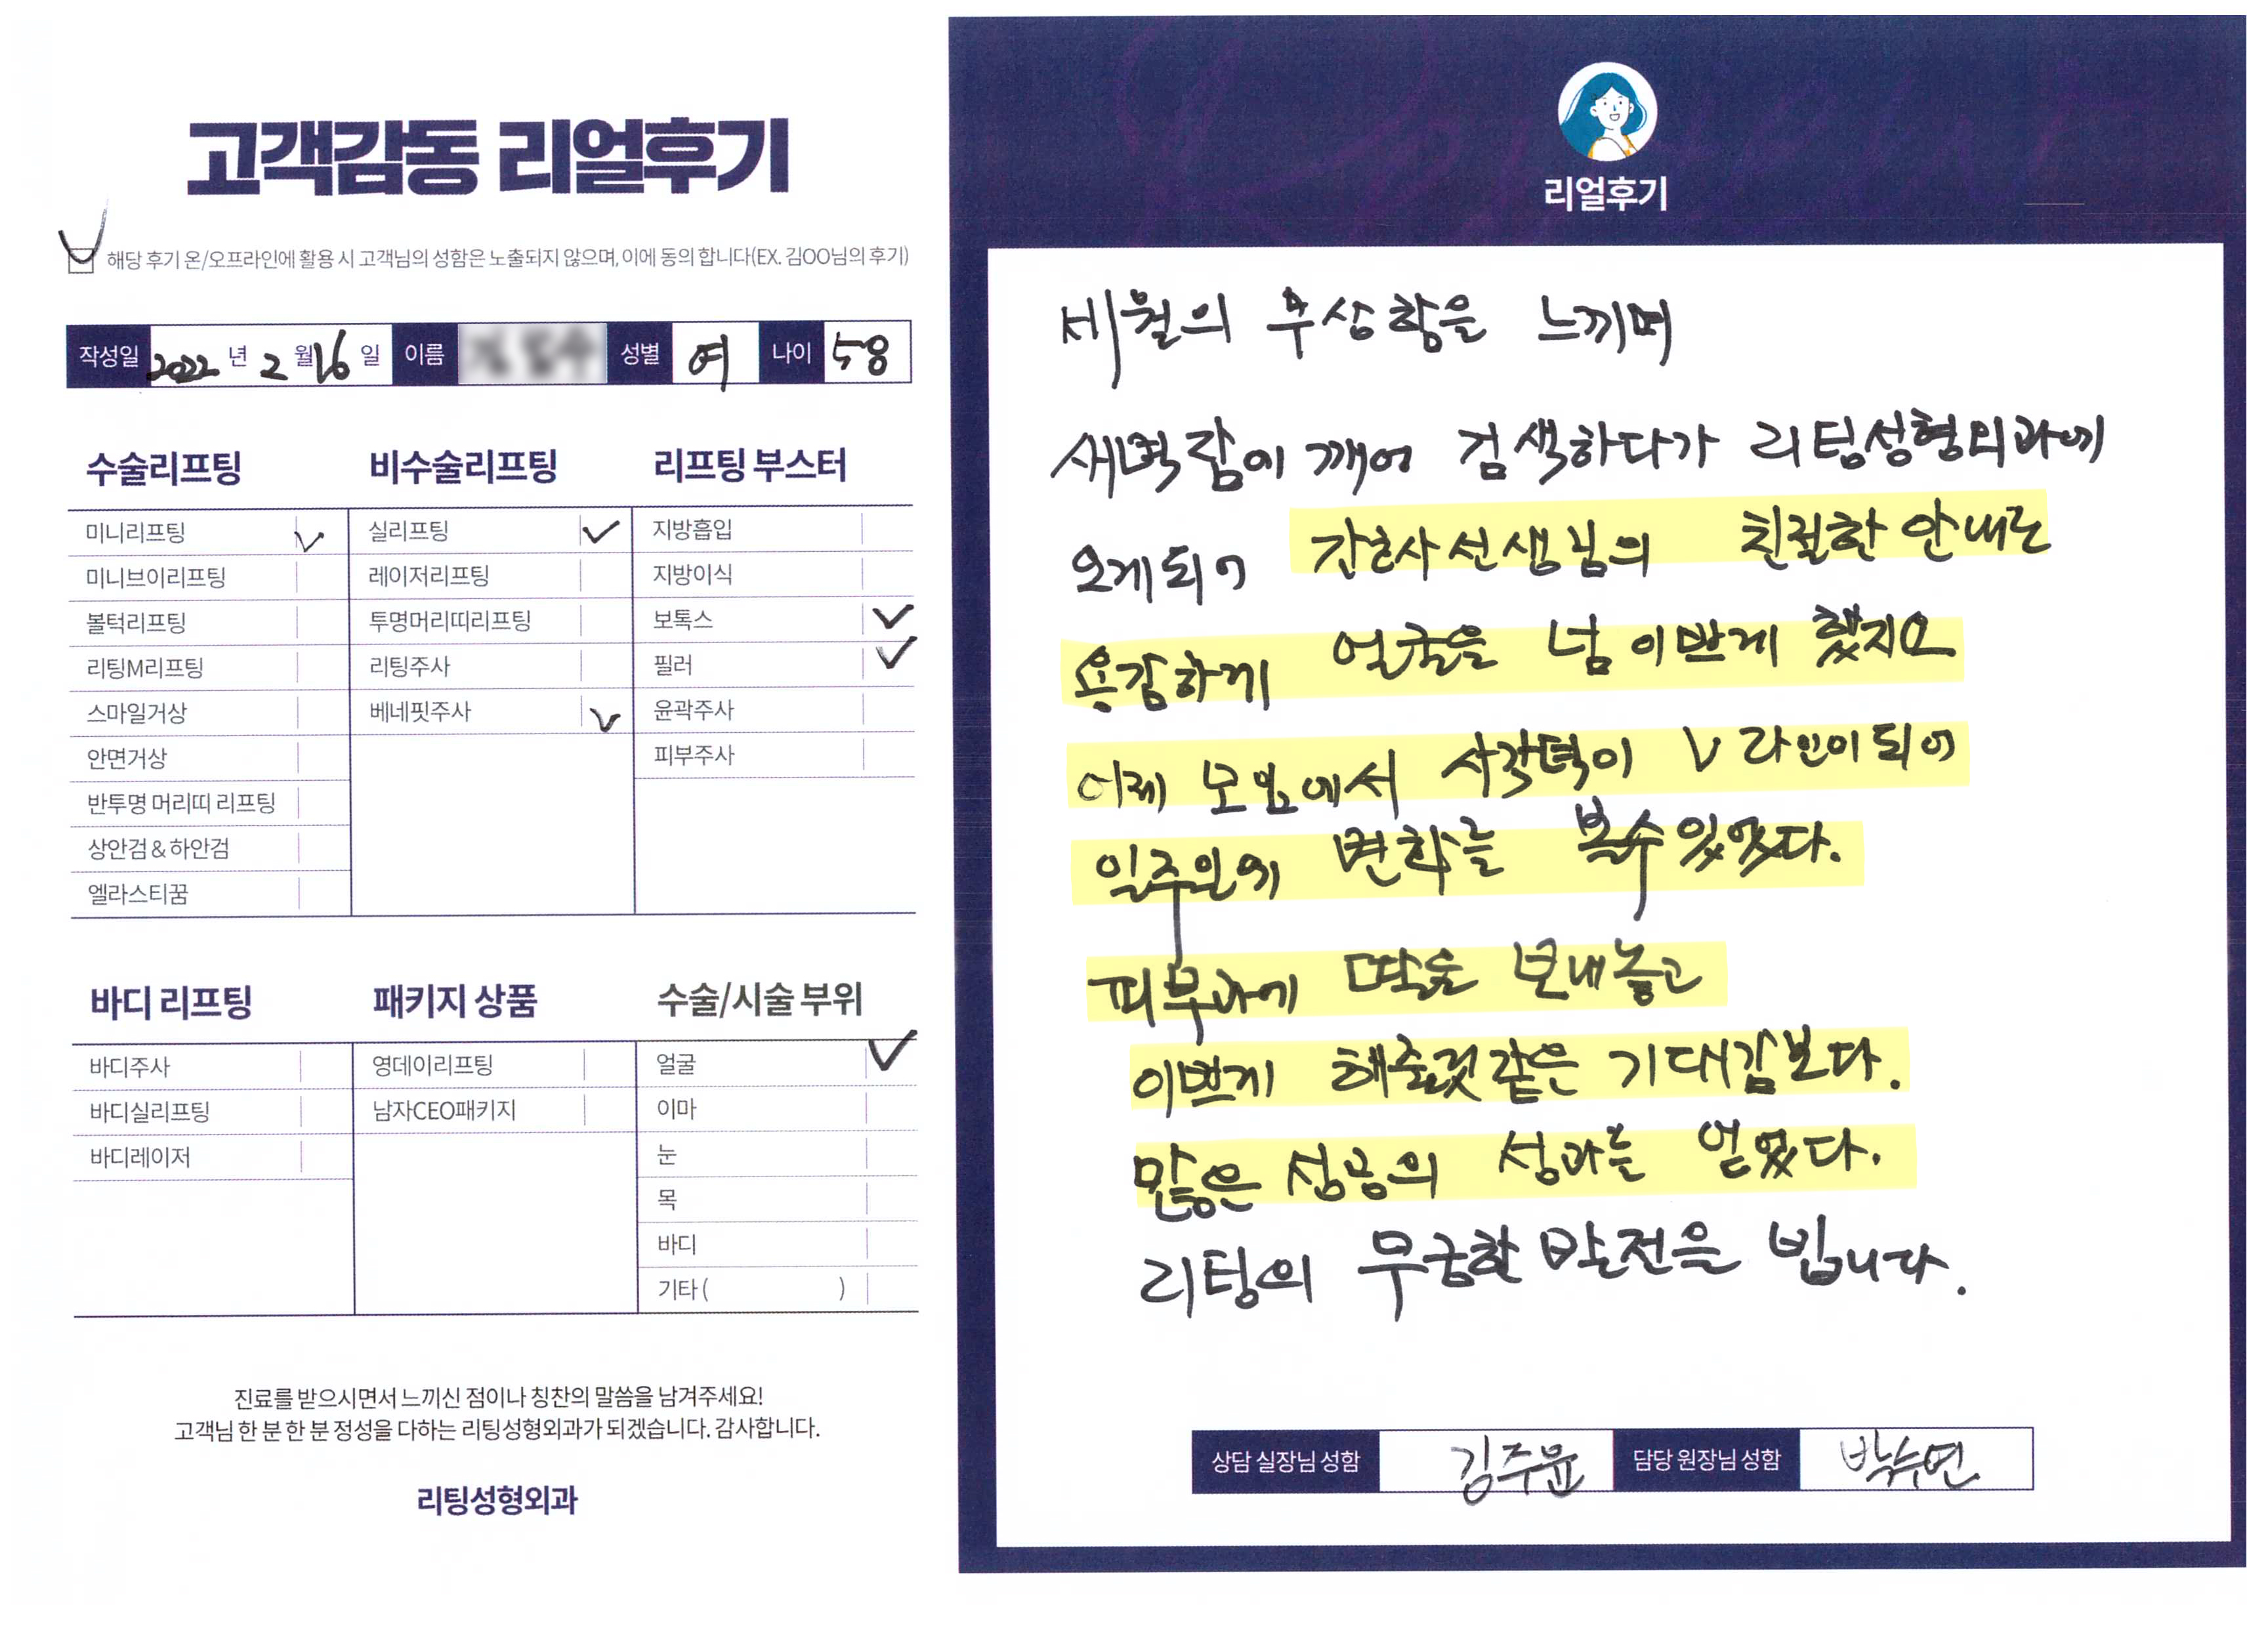 고객감동 리얼후기
해당 후기 온/오프라인에 활용 시 고객님의 성함은 노출되지 않으며, 이에 동의 합니다(EX. 김OO님의 후기)
작성일 2022 년 2 월 16 일 이름 성별 여 나이 58
수술리프팅
미니리프팅
미니브이리프팅
볼턱리프팅
리팅M리프팅
스마일거상
안면거상
반투명 머리띠 리프팅
상안검 & 하안검
엘라스티꿈
비수술리프팅
실리프팅
레이저리프팅
투명머리띠리프팅
리팅주사
베네핏주사
리프팅 부스터
지방흡입
지방이식
보톡스
필러
윤곽주사
피부주사
바디 리프팅
바디주사
바디실리프팅
바디레이저
패키지 상품
영데이리프팅
남자CEO패키지
수술/시술 부위
얼굴
이마
눈
목
바디
기타 ( )
진료를 받으시면서 느끼신 점이나 칭찬의 말씀을 남겨주세요!
고객님 한 분 한 분 정성을 다하는 리팅성형외과가 되겠습니다. 감사합니다.
리팅성형외과
리얼후기
세월의 무상함을 느끼며
새벽잠이 깨어 검색하다가 리팅성형외과에
오게되어 간호사선생님의 친절한 안내로
용감하게 얼굴을 넘 이쁘게 했지요
어제 모임에서 사각턱이 V라인이되어
일주일의 변화를 볼수있었다.
피부과에 딸을 보내놓고
이쁘게 해줄것같은 기대감보다.
많은 성공의 성과를 얻었다.
리팅의 무궁한 발전을 빕니다.
상담 실장님 성함 김주윤 담당 원장님 성함 박수연